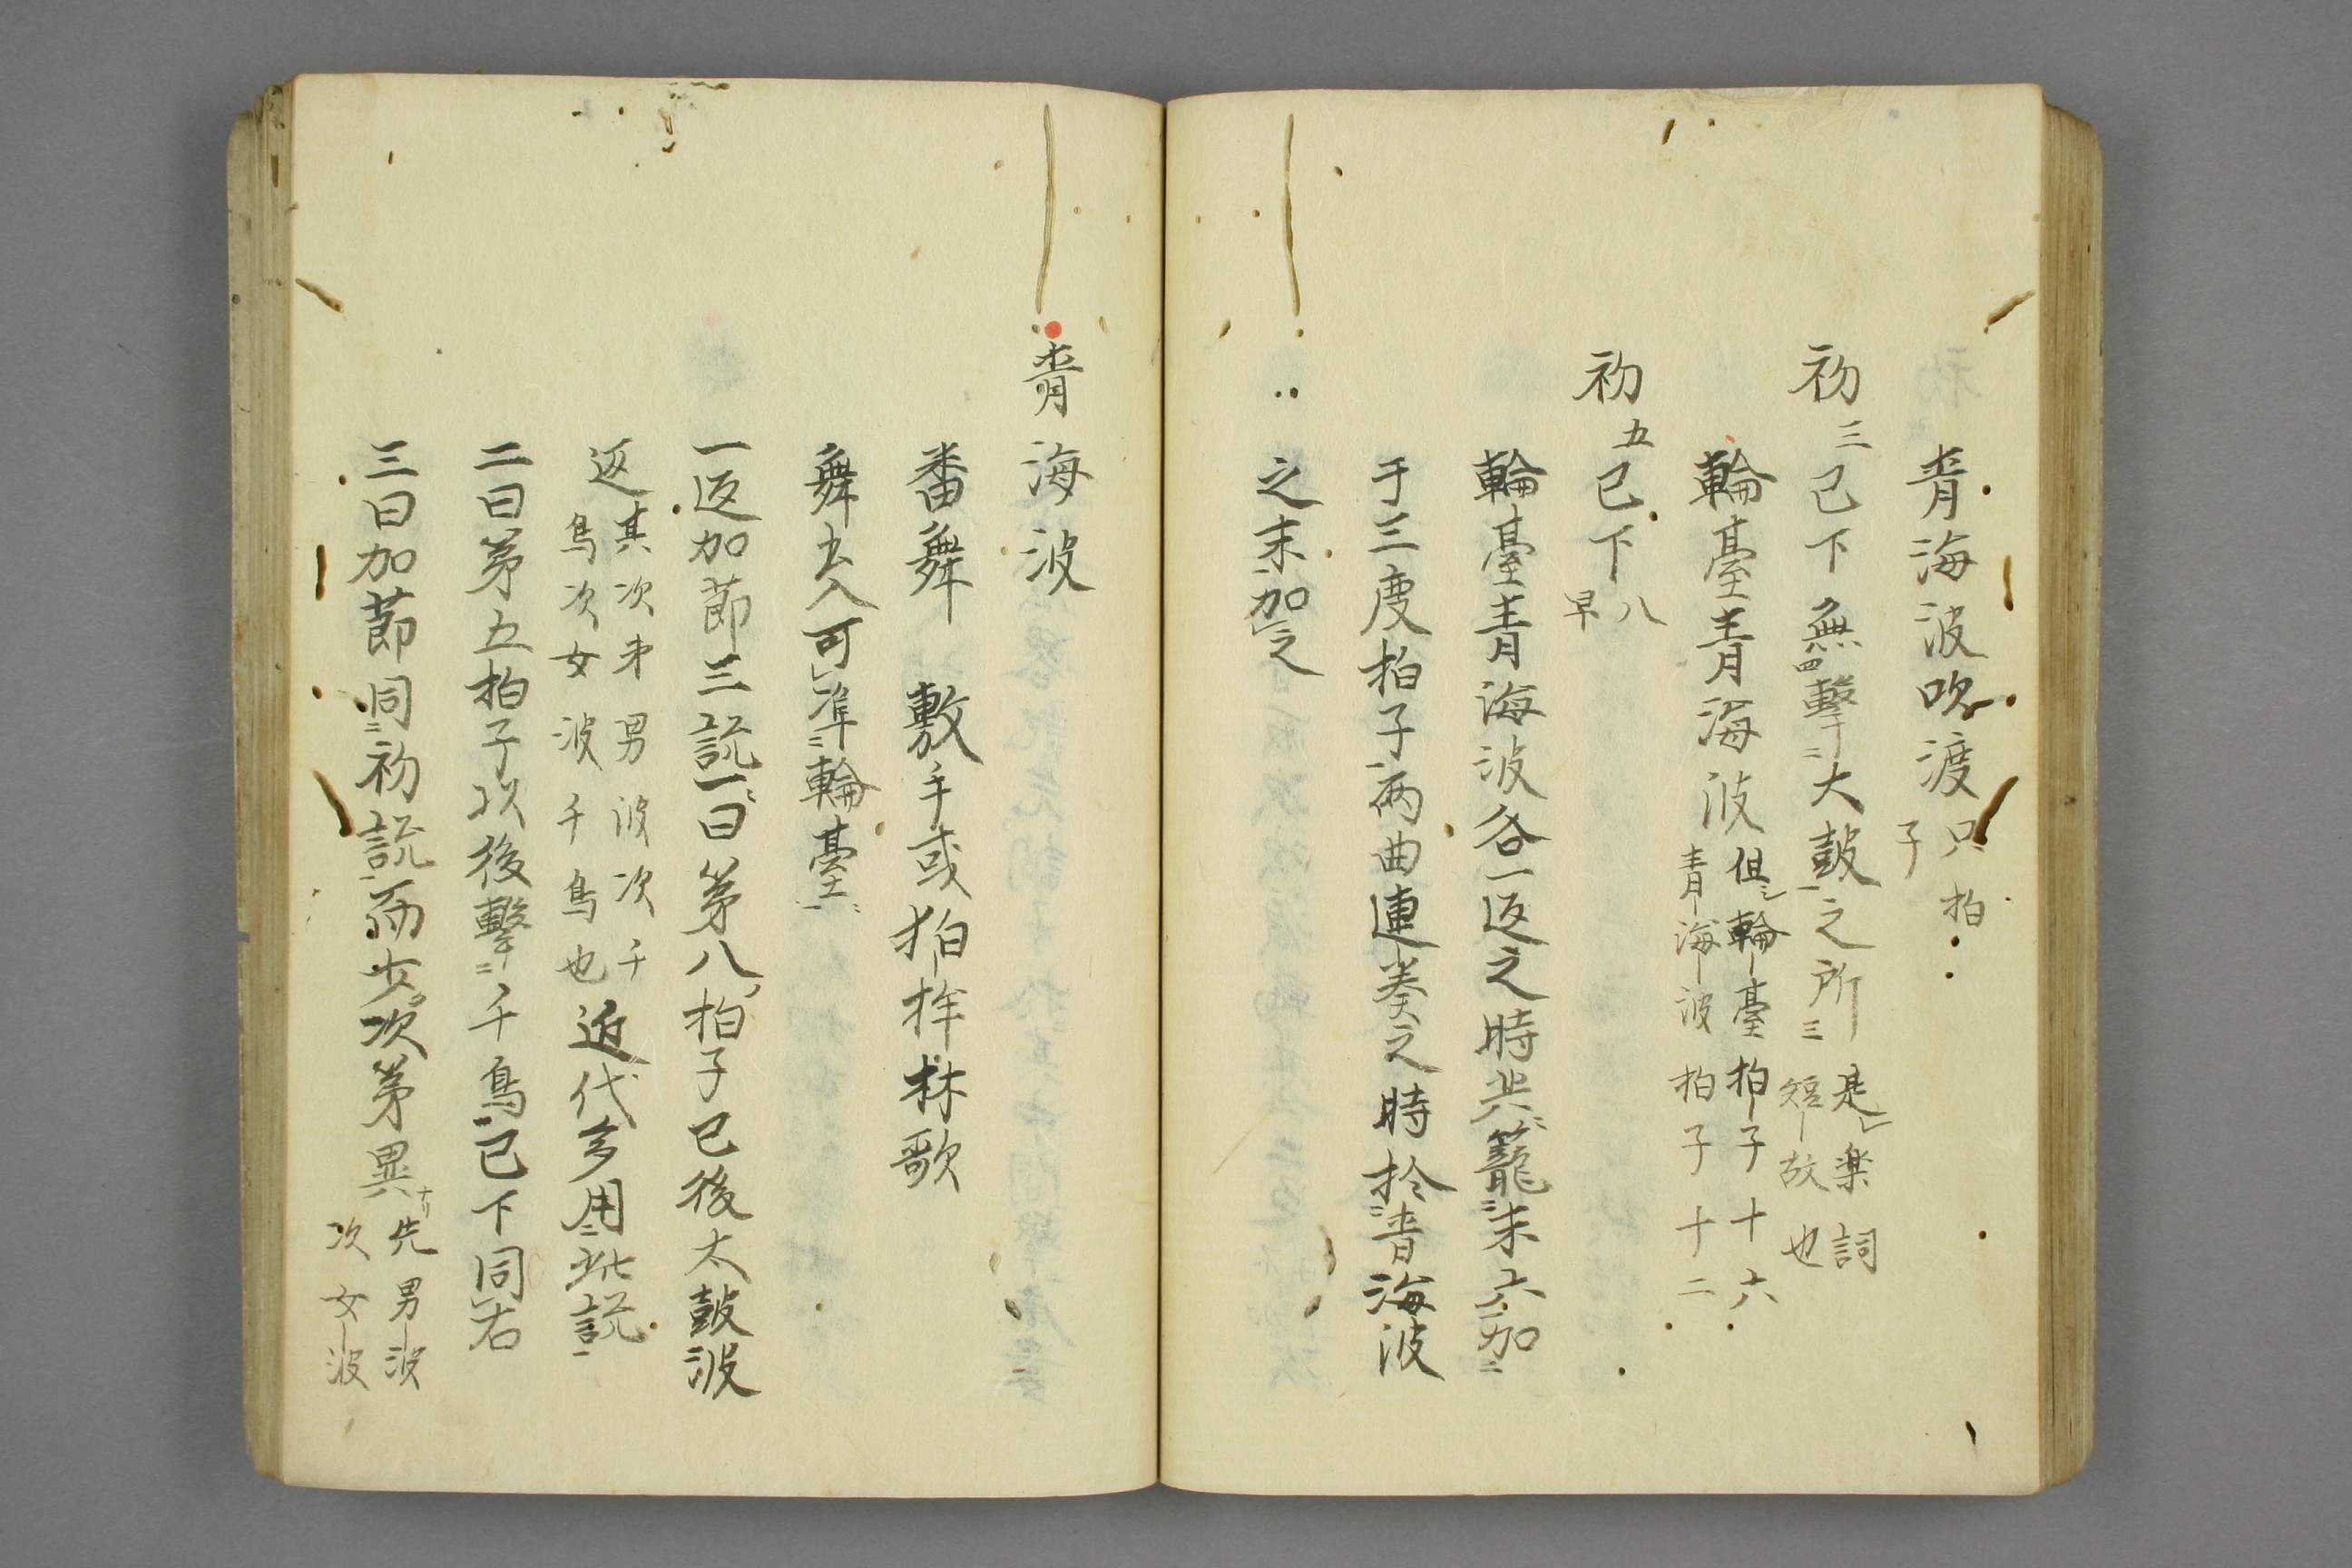 青海波吹渡只拍
子
初三已下無四撃大鼓之所三是楽詞
短故也
輪臺青海波但輪臺拍子十六
青海波拍子十二
初五已下八
早
輪臺青海波各一返之時共籠末六加
于三度拍子両曲連奏之時於青海波
之末加之
青海波
番舞 敷手或狛桙林歌
舞出入可准輪臺
一返加節三説一曰第八拍子已後太鼓波
返其次第男波次千
鳥次女波千鳥也近代多用此説
二曰第五拍子以後撃千鳥已下同右
三曰加節同初説而少次第異ナリ先男波
次女波